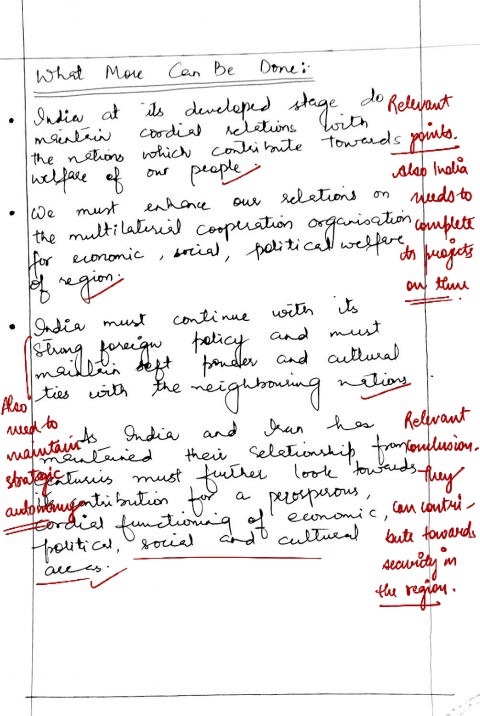 What More Can Be Done:-
• India at its developed stage do
maintain cordial relations with
the nations which contribute towards
welfare of our people.
Relevant
points.
Also India
needs to
complete
its projects
on time
• We must enhance our relations on
the multilaterial cooperation organisation
for economic, social, political welfare
of region.
• India must continue with its
strong foreign policy and must
maintain soft power and cultural
ties with the neighbouring nations.
Also
need to
maintain
strategic
autonomy
As India and Iran has
maintained their relationship from
centuries must further look towards
contribution for a perosperous,
cordial functioning of economic,
political, social and cultural
areas.
Relevant
conclusion.
They
can contri-
bute towards
security in
the region.